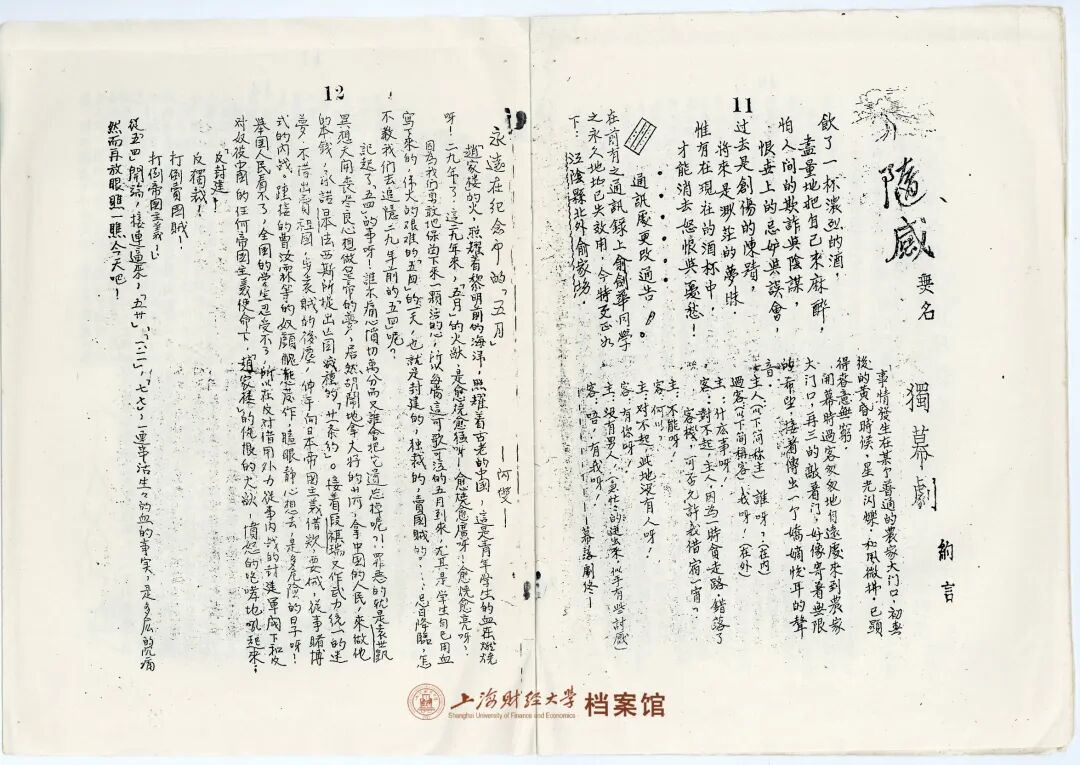 11
隨感
無名
飲了一杯濃烈的酒，
盡量地把自己來麻醉，
怕人间的欺詐與陰謀，
恨世上的忌妒與誤會，
过去是創傷的陳蹟，
將來是
的夢
惟有在現在的酒杯中，
才能消去怨恨與憂愁！
通訊處更改通告
在前有之通訊录上俞劍華同學
之永久地址已失效用，今特更正如
下：江陰縣北外俞家埸，
獨幕劇
納言
事情發生在某个普通的農家大门口，初
後的黃昏時候，星光闪爍，和風微拂，已顯
得春意無窮
闭幕時過客匆匆地自遠處來到農家
大门口，再三的敲着门，好像寄着無限
的希望，接着傳出一个嬌嫡悅耳的聲
音：
女主人（以下间称主）誰呀？（在内）
過客（以下简稱客）我呀！（在外）
主：什広事呀！
客：對不起，主人，因為一時貪走路，錯落了
客棧，可否允許我借宿一宵？
主：不能呀！
客：何以？
主：对不起，此地没有人呀！
客：有你呀！
主：没有男人，
的進出來似乎有些討
客：唔，有我呀！
—幕落劇终—
12
永遠在犯念中的「五月」
—何燮—
「趙家樓的火，照耀着黎明前的海洋，照耀着古老的中國，這是青年学生的血在燃燒
呀！二九年了？這二九年來，「五月」的火燄，是愈燒愈猛呀！愈燒愈廣呀！愈燒愈亮呀！
因為我们勇敢地保留下來一颗活的心，所以每當這可歌可泣的五月到來，尤其是学生自己用血
寫下來的，偉大的艰难的五四的一天，也就是封建的，独裁的，賣國賊的……忌日降臨，怎
不教我们去追憶二九年前的五四呢？
記起了「五四」的事呀！誰不痛心憤切萬分而又誰會把它遺忘掉呢？！罪恶的就是袁世凱
異想天闹丧尽良心想做皇帝的夢，居然胡鬧地拿大好的山河，拿中国的人民，來做他
的本钱，承诺日本法西斯所提出亡国滅種的「廿一条約」。接着段祺瑞又作武力統一的迷
夢，不惜出賣自祖国，步袁贼的後塵，伸手向日本帝國主義借欵，要械，從事賭博
式的内战，
的曽汝霖等的奴顏醜態
作，瞌眼静心想去，是多危險的日子呀！
舉国人民看不了，全国的学生忍受不了，所以在反对借用外力從事内战的封建軍阀下和反
对奴役中国的任何帝國主義使命下，「趙家樓」的仇恨的火燄，憤怒的咆哮地吼起來：
「反封建！
反獨裁！
打倒賣国贼！
打倒帝国主義！」
從「五四」開始，接連過來，「五卅」、「一二一」、「七七」、一連串活生々的血的事实，是多広的沉痛
然而再放眼照一照今天吧！
上海财经大学
Shanghai University of Finance and Economics
档案馆